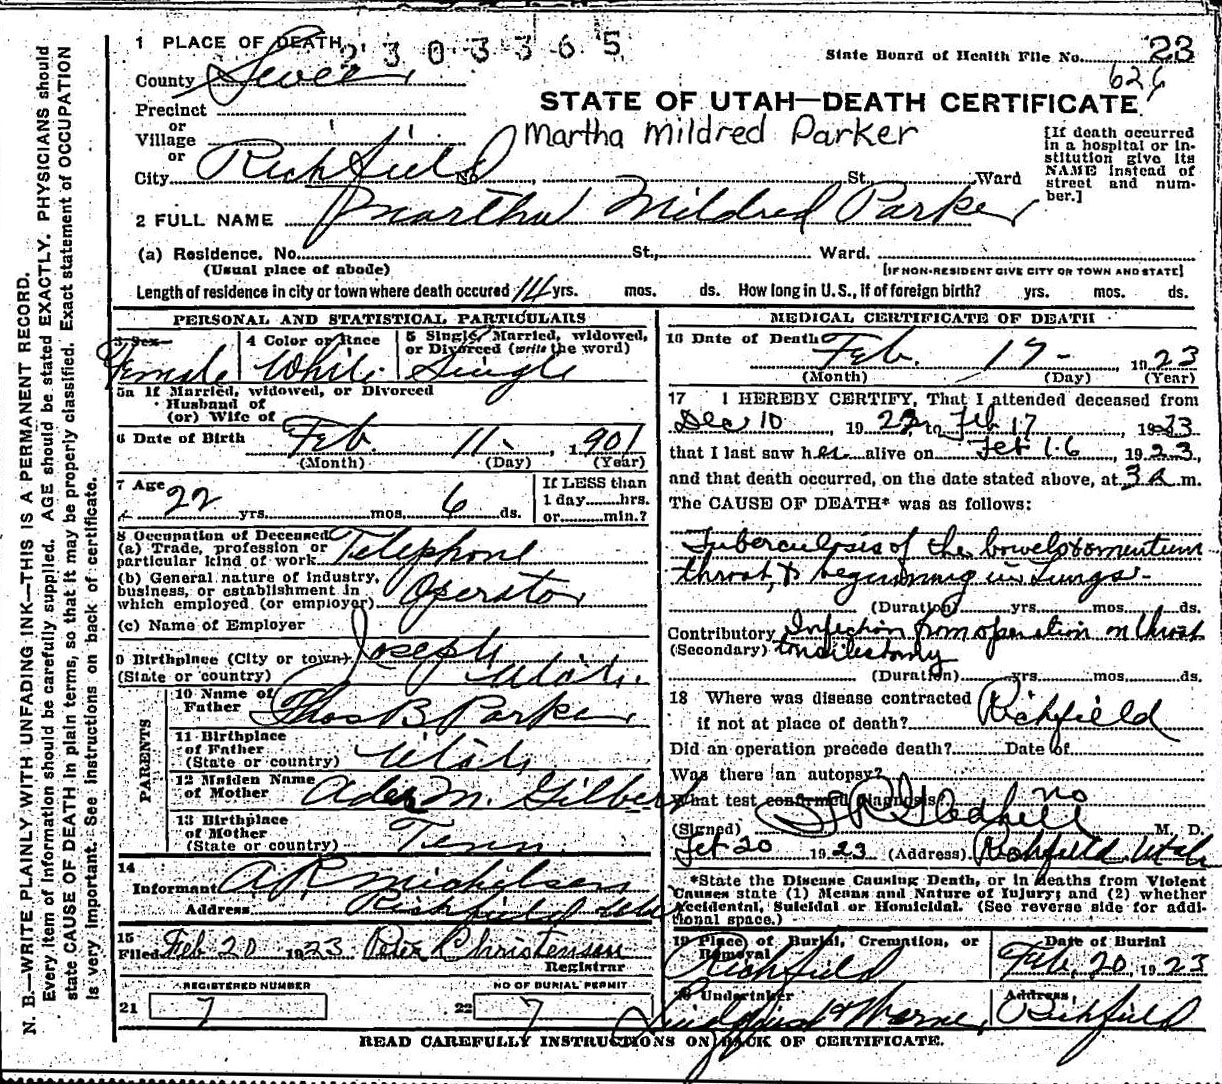 1 PLACE OF DEATH
2303365
State Board of Health File No. 23
626
County Sevier
STATE OF UTAH—DEATH CERTIFICATE
Precinct
or
Village
or
Martha Mildred Parker
[If death occurred
in a hospital or in-
stitution give its
NAME instead of
street and num-
ber.]
City Richfield No. , St., Ward
2 FULL NAME Martha Mildred Parker
(a) Residence. No. St., Ward.
(Usual place of abode)
[IF NON-RESIDENT GIVE CITY OR TOWN AND STATE]
Length of residence in city or town where death occured 14 yrs. mos. ds. How long in U.S., if of foreign birth? yrs. mos. ds.
PERSONAL AND STATISTICAL PARTICULARS
3 Sex
Female
4 Color or Race
White
5 Single, Married, widowed,
or Divorced (write the word)
Single
5a If Married, widowed, or Divorced
Husband of
(or) Wife of
6 Date of Birth Feb. 11- , 1901
(Month) (Day) (Year)
7 Age 22 yrs. mos. 6 ds.
If LESS than
1 day hrs.
or min.?
8 Occupation of Deceased
(a) Trade, profession or
particular kind of work Telephone
(b) General nature of industry,
business, or establishment in
which employed (or employer) Operator
(c) Name of Employer
9 Birthplace (City or town) Joseph
(State or country) Utah.
PARENTS
10 Name of
Father Thos B Parker
11 Birthplace
of Father
(State or country) Utah
12 Maiden Name
of Mother Ader M. Gilbert
13 Birthplace
of Mother
(State or country) Tenn.
14
Informant A P Michelsen
Address Richfield Utah
15
Filed Feb 20 1923 Peter Christensen
Registrar
REGISTERED NUMBER
21 7
NO OF BURIAL PERMIT
22 7
MEDICAL CERTIFICATE OF DEATH
16 Date of Death Feb. 17- 1923
(Month) (Day) (Year)
17 I HEREBY CERTIFY, That I attended deceased from
Dec 10 , 1922 to Feb 17 , 1923
that I last saw her alive on Feb 16 , 1923,
and that death occurred, on the date stated above, at 3 a m.
The CAUSE OF DEATH* was as follows:
Tuberculosis of the bowels & omentum
throat, & beginning in Lungs-
(Duration) yrs. mos. ds.
Contributory Infection from operation on throat
(Secondary) tonsilectomy
(Duration) yrs. mos. ds.
18 Where was disease contracted
if not at place of death? Richfield
Did an operation precede death? Date of
Was there an autopsy?
What test confirmed diagnosis? no
(Signed) Gledhill M. D.
Feb 20 1923 (Address) Richfield, Utah
*State the Disease Causing Death, or in deaths from Violent
Causes state (1) Means and Nature of Injury; and (2) whether
Accidental, Suicidal or Homicidal. (See reverse side for addi-
tional space.)
19 Place of Burial, Cremation, or
Removal
Richfield
Date of Burial
Feb, 20, 1923
20 Undertaker
Address,
Richfield
READ CAREFULLY INSTRUCTIONS ON BACK OF CERTIFICATE.
N. B.—WRITE PLAINLY WITH UNFADING INK—THIS IS A PERMANENT RECORD.
Every item of information should be carefully supplied. AGE should be stated EXACTLY. PHYSICIANS should
state CAUSE OF DEATH in plain terms, so that it may be properly classified. Exact statement of OCCUPATION
is very important. See instructions on back of certificate.